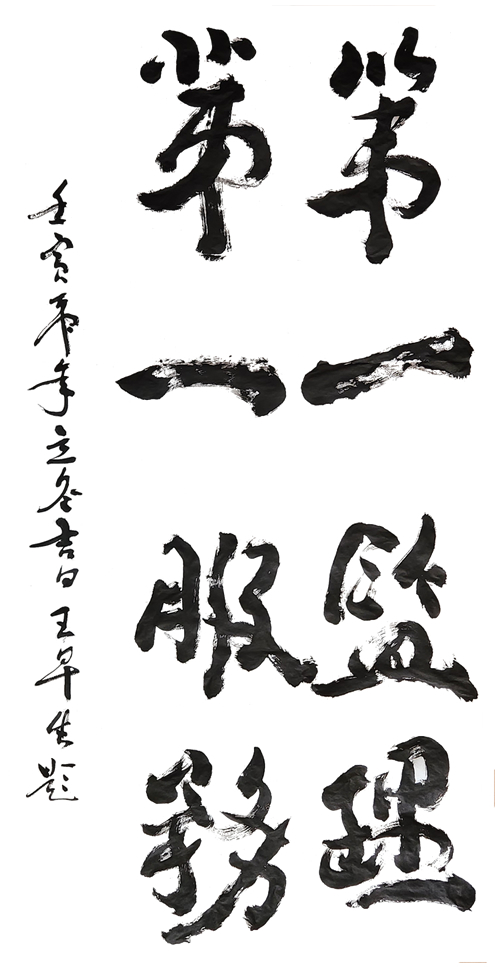 第一監理
第一服務
壬寅虎年立冬吉日王早生題